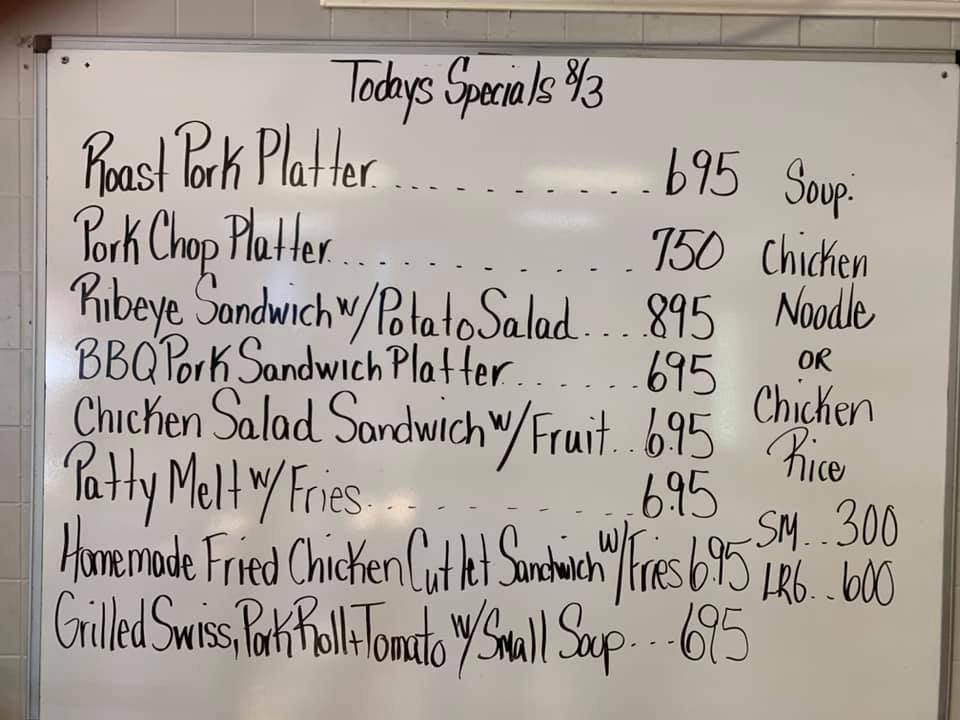 Todays Specials 8/3
Roast Pork Platter.......... 695
Pork Chop Platter........... 750
Ribeye Sandwich w/Potato Salad.... 895
BBQ Pork Sandwich Platter...... 695
Chicken Salad Sandwich w/Fruit.. 6.95
Patty Melt w/Fries.......... 6.95
Homemade Fried Chicken Cutlet Sandwich w/Fries 6.95
Grilled Swiss, Pork Roll + Tomato w/Small Soup... 695
Soup:
Chicken
Noodle
OR
Chicken
Rice
SM... 300
LRG... 600